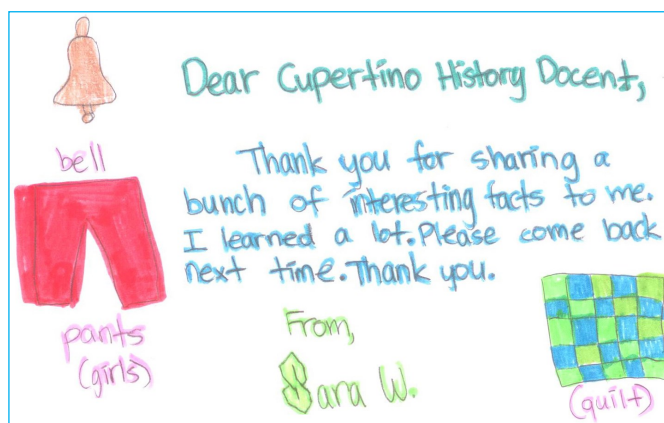 Dear Cupertino History Docent,
bell
Thank you for sharing a
bunch of interesting facts to me.
I learned a lot. Please come back
next time. Thank you.
pants
(girls)
From,
Sara W.
(quilt)